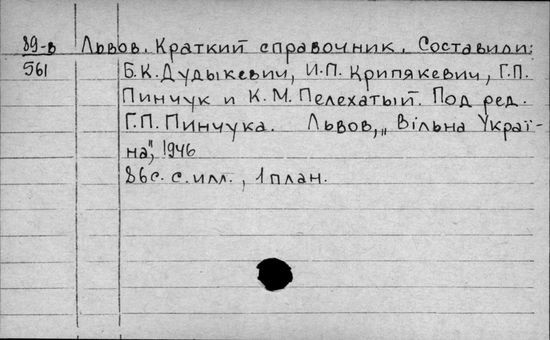 89-в Львов. Краткий справочник. Составили:
561 Б.К.Дудыкевич, И.П. Крипякевич, Г.П.
Пинчук и К.М. Пелехатый. Под ред.
Г.П. Пинчука. Львов, „Вільна Украї-
на", 1946
86с. с. илл., 1 план.